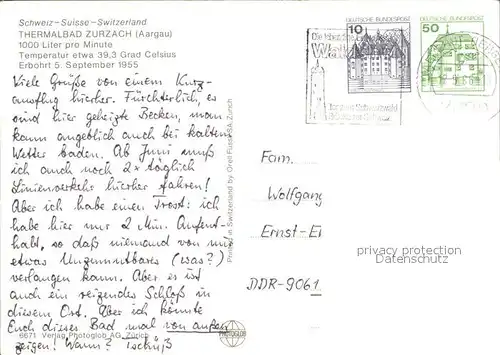 Schweiz-Suisse-Switzerland
THERMALBAD ZURZACH (Aargau)
1000 Liter pro Minute
Temperatur etwa 39,3 Grad Celsius
Erbohrt 5. September 1955
Viele Grüße von einem Kurz-
ausflug hierher. Fürchterlich, es
sind hier geheizte Becken, man
kann angeblich auch bei kaltem
Wetter baden. Ab Juni muß
ich auch noch 2 x täglich
Linienverkehr hierher fahren!
Aber ich habe einen Trost: ich
habe hier nur 2 Min. Aufent-
halt, so daß niemand von mir
etwas Unzumutbares (was?)
verlangen kann. Aber es ist
auch ein reizendes Schloß in
diesem Ort. Aber ich könnte
Euch dieses Bad mal von außen
zeigen! Wann? Tschüß
6671 Verlag Photoglob AG, Zürich
Printed in Switzerland by Orell Füssli SA, Zürich
PHOTOGLOB
10 DEUTSCHE BUNDESPOST
50 DEUTSCHE BUNDESPOST
Fam.
Wolfgang
Ernst-
DDR-9061
privacy protection
Datenschutz